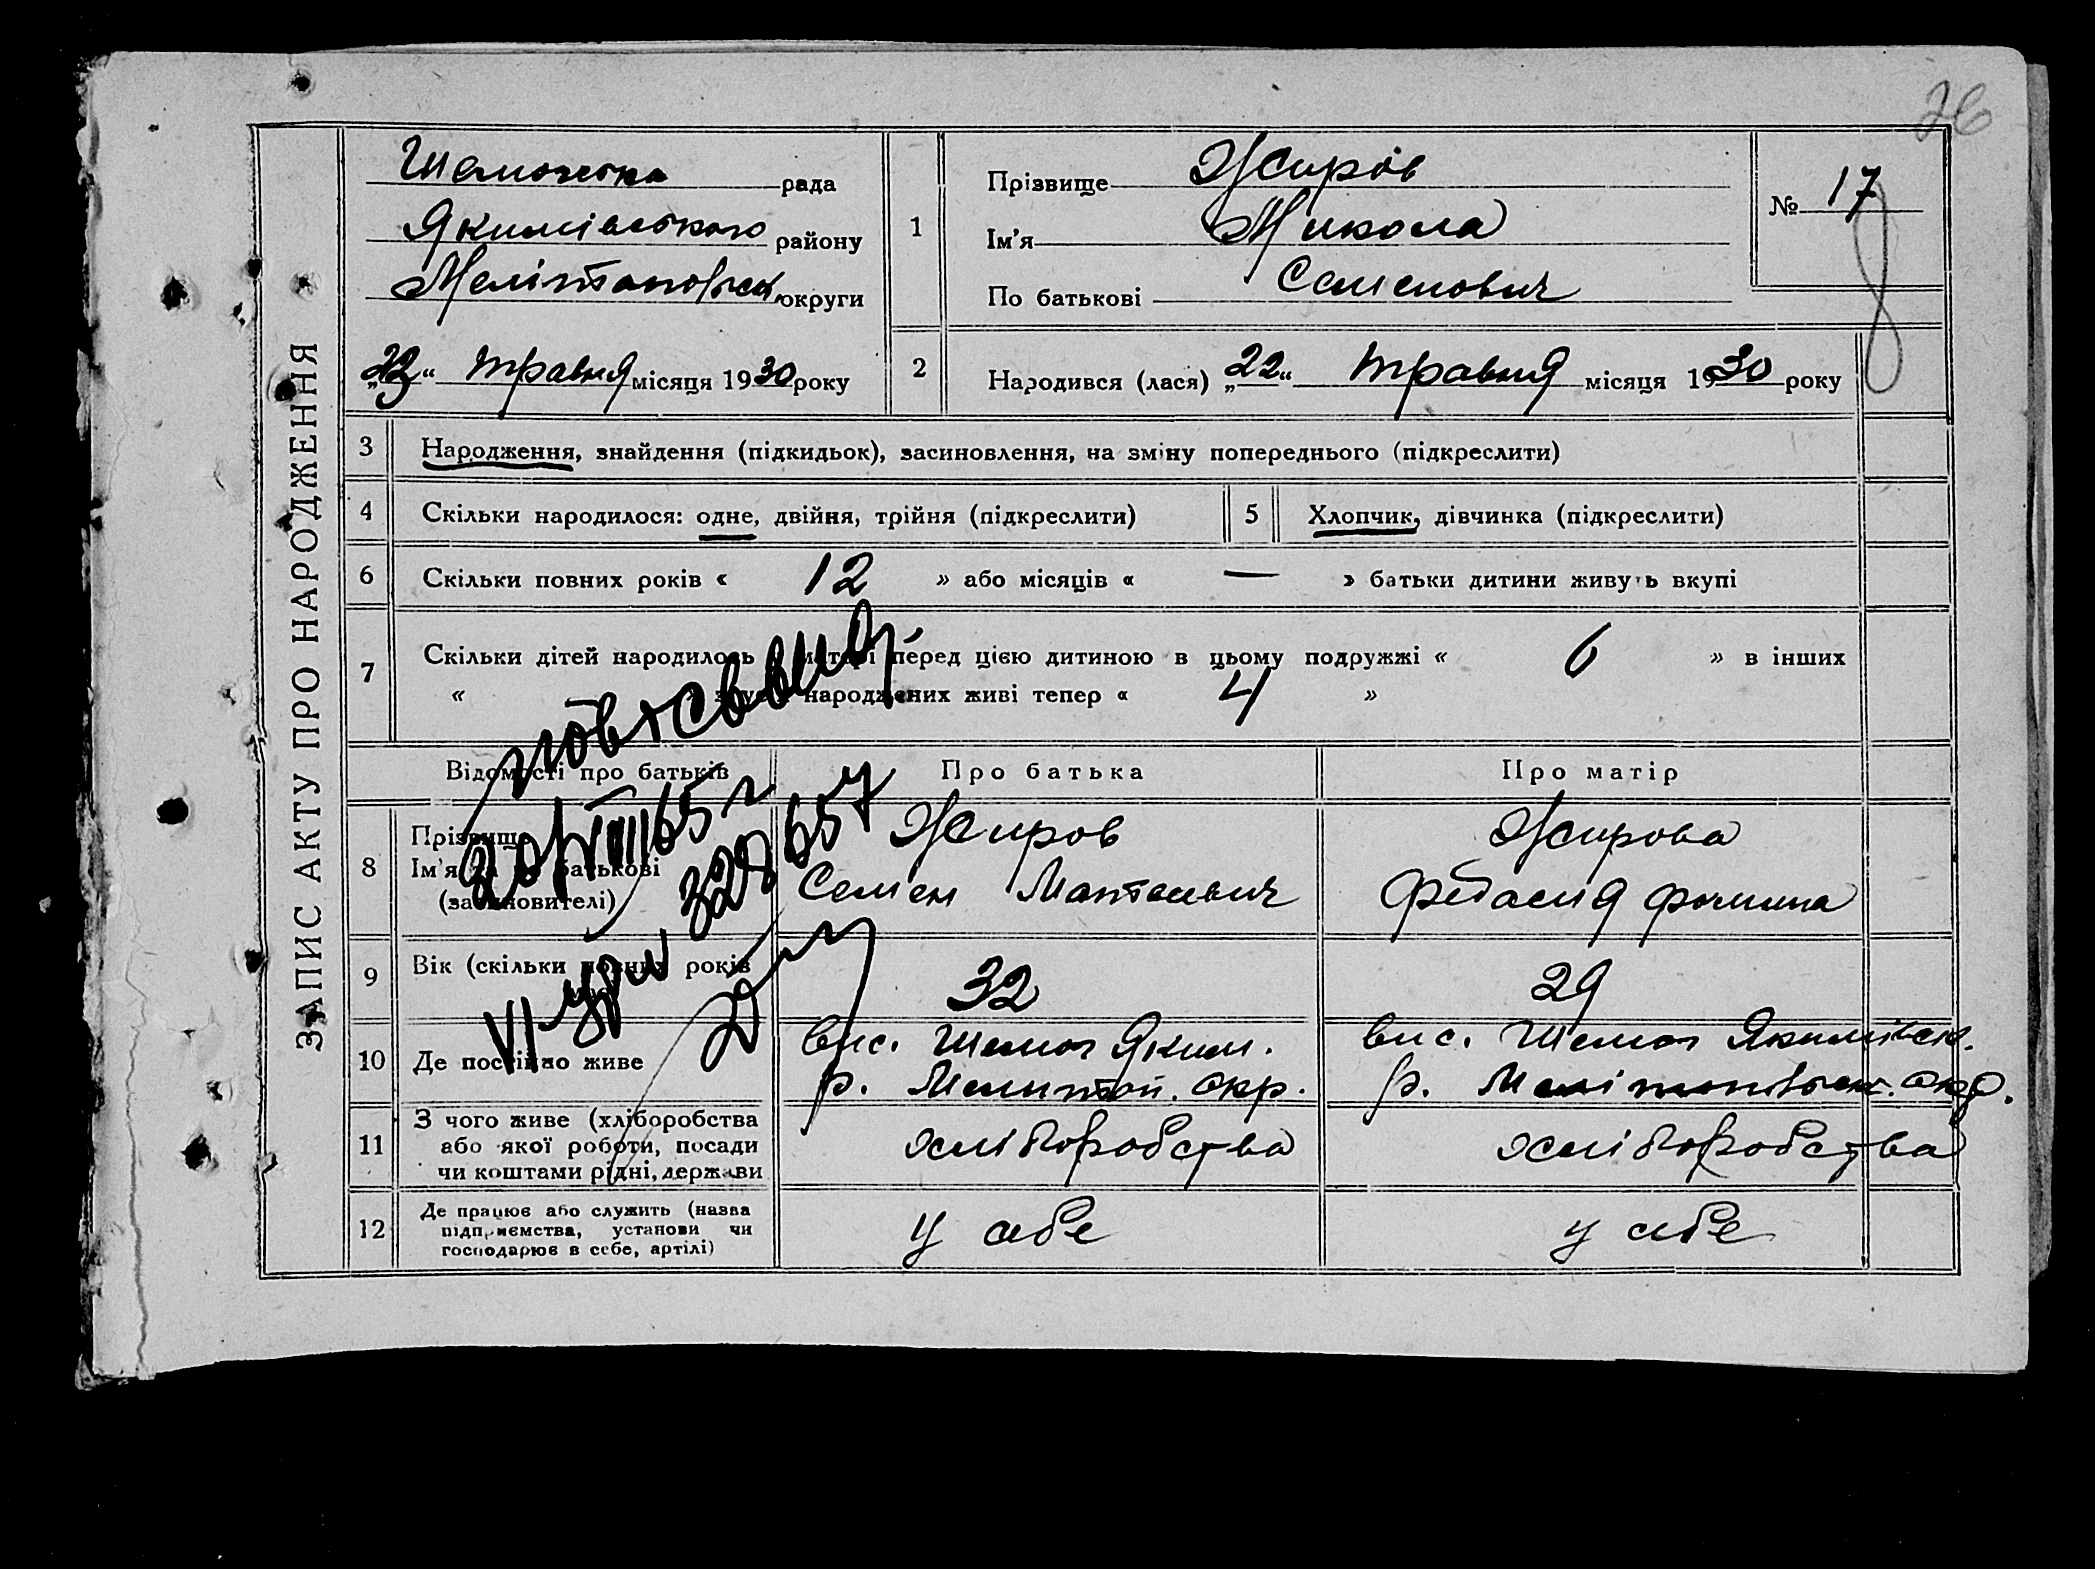 26
ЗАПИС АКТУ ПРО НАРОДЖЕННЯ
рада
Якимівського району
округи
травня місяця 1930 року
1
Прізвище Жиров
Ім'я Микола
По батькові Семенович
№ 17
2
Народився (лася) „22“ травня місяця 1930 року
3
Народження, знайдення (підкидьок), засиновлення, на зміну попереднього (підкреслити)
4
Скільки народилося: одне, двійня, трійня (підкреслити)
5
Хлопчик, дівчинка (підкреслити)
6
Скільки повних років « 12 » або місяців « — » батьки дитини живуть вкупі
7
Скільки дітей народилось матері перед цією дитиною в цьому подружжі « 6 » в інших
« народжених живі тепер « 4 »
Відомості про батьків
Про батька
Про матір
8
Прізвище
Ім'я та по батькові
(засиновителі)
Жиров
Семен
Жирова
9
Вік (скільки повних років
32
29
10
Де постійно живе
вис. Шемот Яким.
р. Мелитоп. окр.
вис. Шемот Якимівськ.
р. окр.
11
З чого живе (хліборобства
або якої роботи, посади
чи коштами рідні, держави
хліборобства
хліборобства
12
Де працює або служить (назва
підприємства, установи чи
господарює в себе, артілі)
у себе
у себе